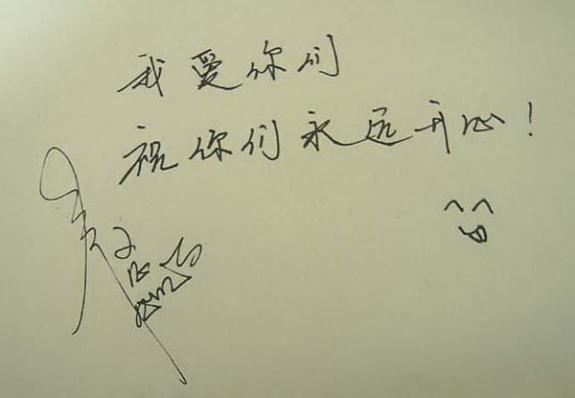 我爱你们
祝你们永远开心！